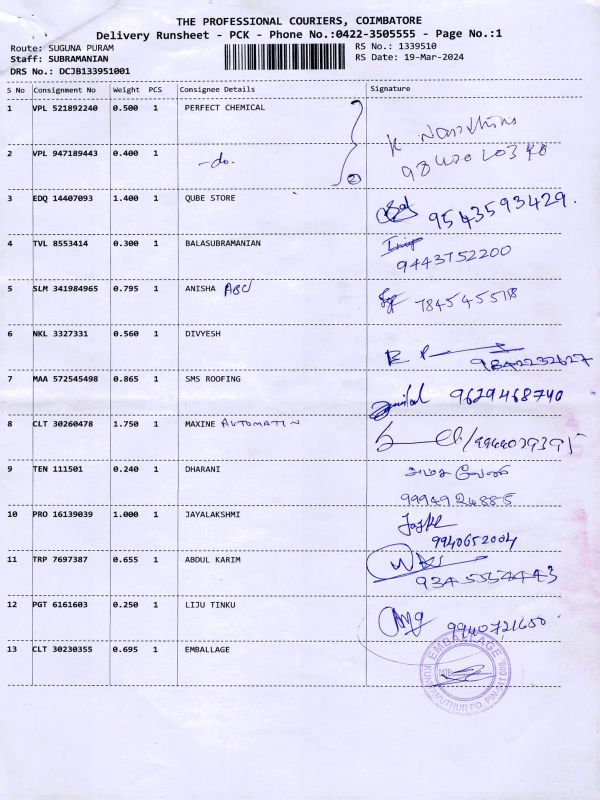 THE PROFESSIONAL COURIERS, COIMBATORE
Delivery Runsheet - PCK - Phone No.:0422-3505555 - Page No.:1
Route: SUGUNA PURAM
RS No.: 1339510
Staff: SUBRAMANIAN
RS Date: 19-Mar-2024
DRS No.: DCJB133951001
S No Consignment No Weight PCS Consignee Details Signature
1 VPL 521892240 0.500 1 PERFECT CHEMICAL
2 VPL 947189443 0.400 1 -do. 2
3 EDQ 14407093 1.400 1 QUBE STORE 9543593429.
4 TVL 8553414 0.300 1 BALASUBRAMANIAN
9443752200
5 SLM 341984965 0.795 1 ANISHA ABC 7845455718
6 NKL 3327331 0.560 1 DIVYESH
9842232627
7 MAA 572545498 0.865 1 SMS ROOFING 9629468740
8 CLT 30260478 1.750 1 MAXINE AUTOMATIN
9 TEN 111501 0.240 1 DHARANI
9994924885
10 PRO 16139039 1.000 1 JAYALAKSHMI
9940652004
11 TRP 7697387 0.655 1 ABDUL KARIM
9345554443
12 PGT 6161603 0.250 1 LIJU TINKU
9940721650
13 CLT 30230355 0.695 1 EMBALLAGE
EMBALLAGE
DATE
KUNIYAMUTHUR PO, PIN-641 008.